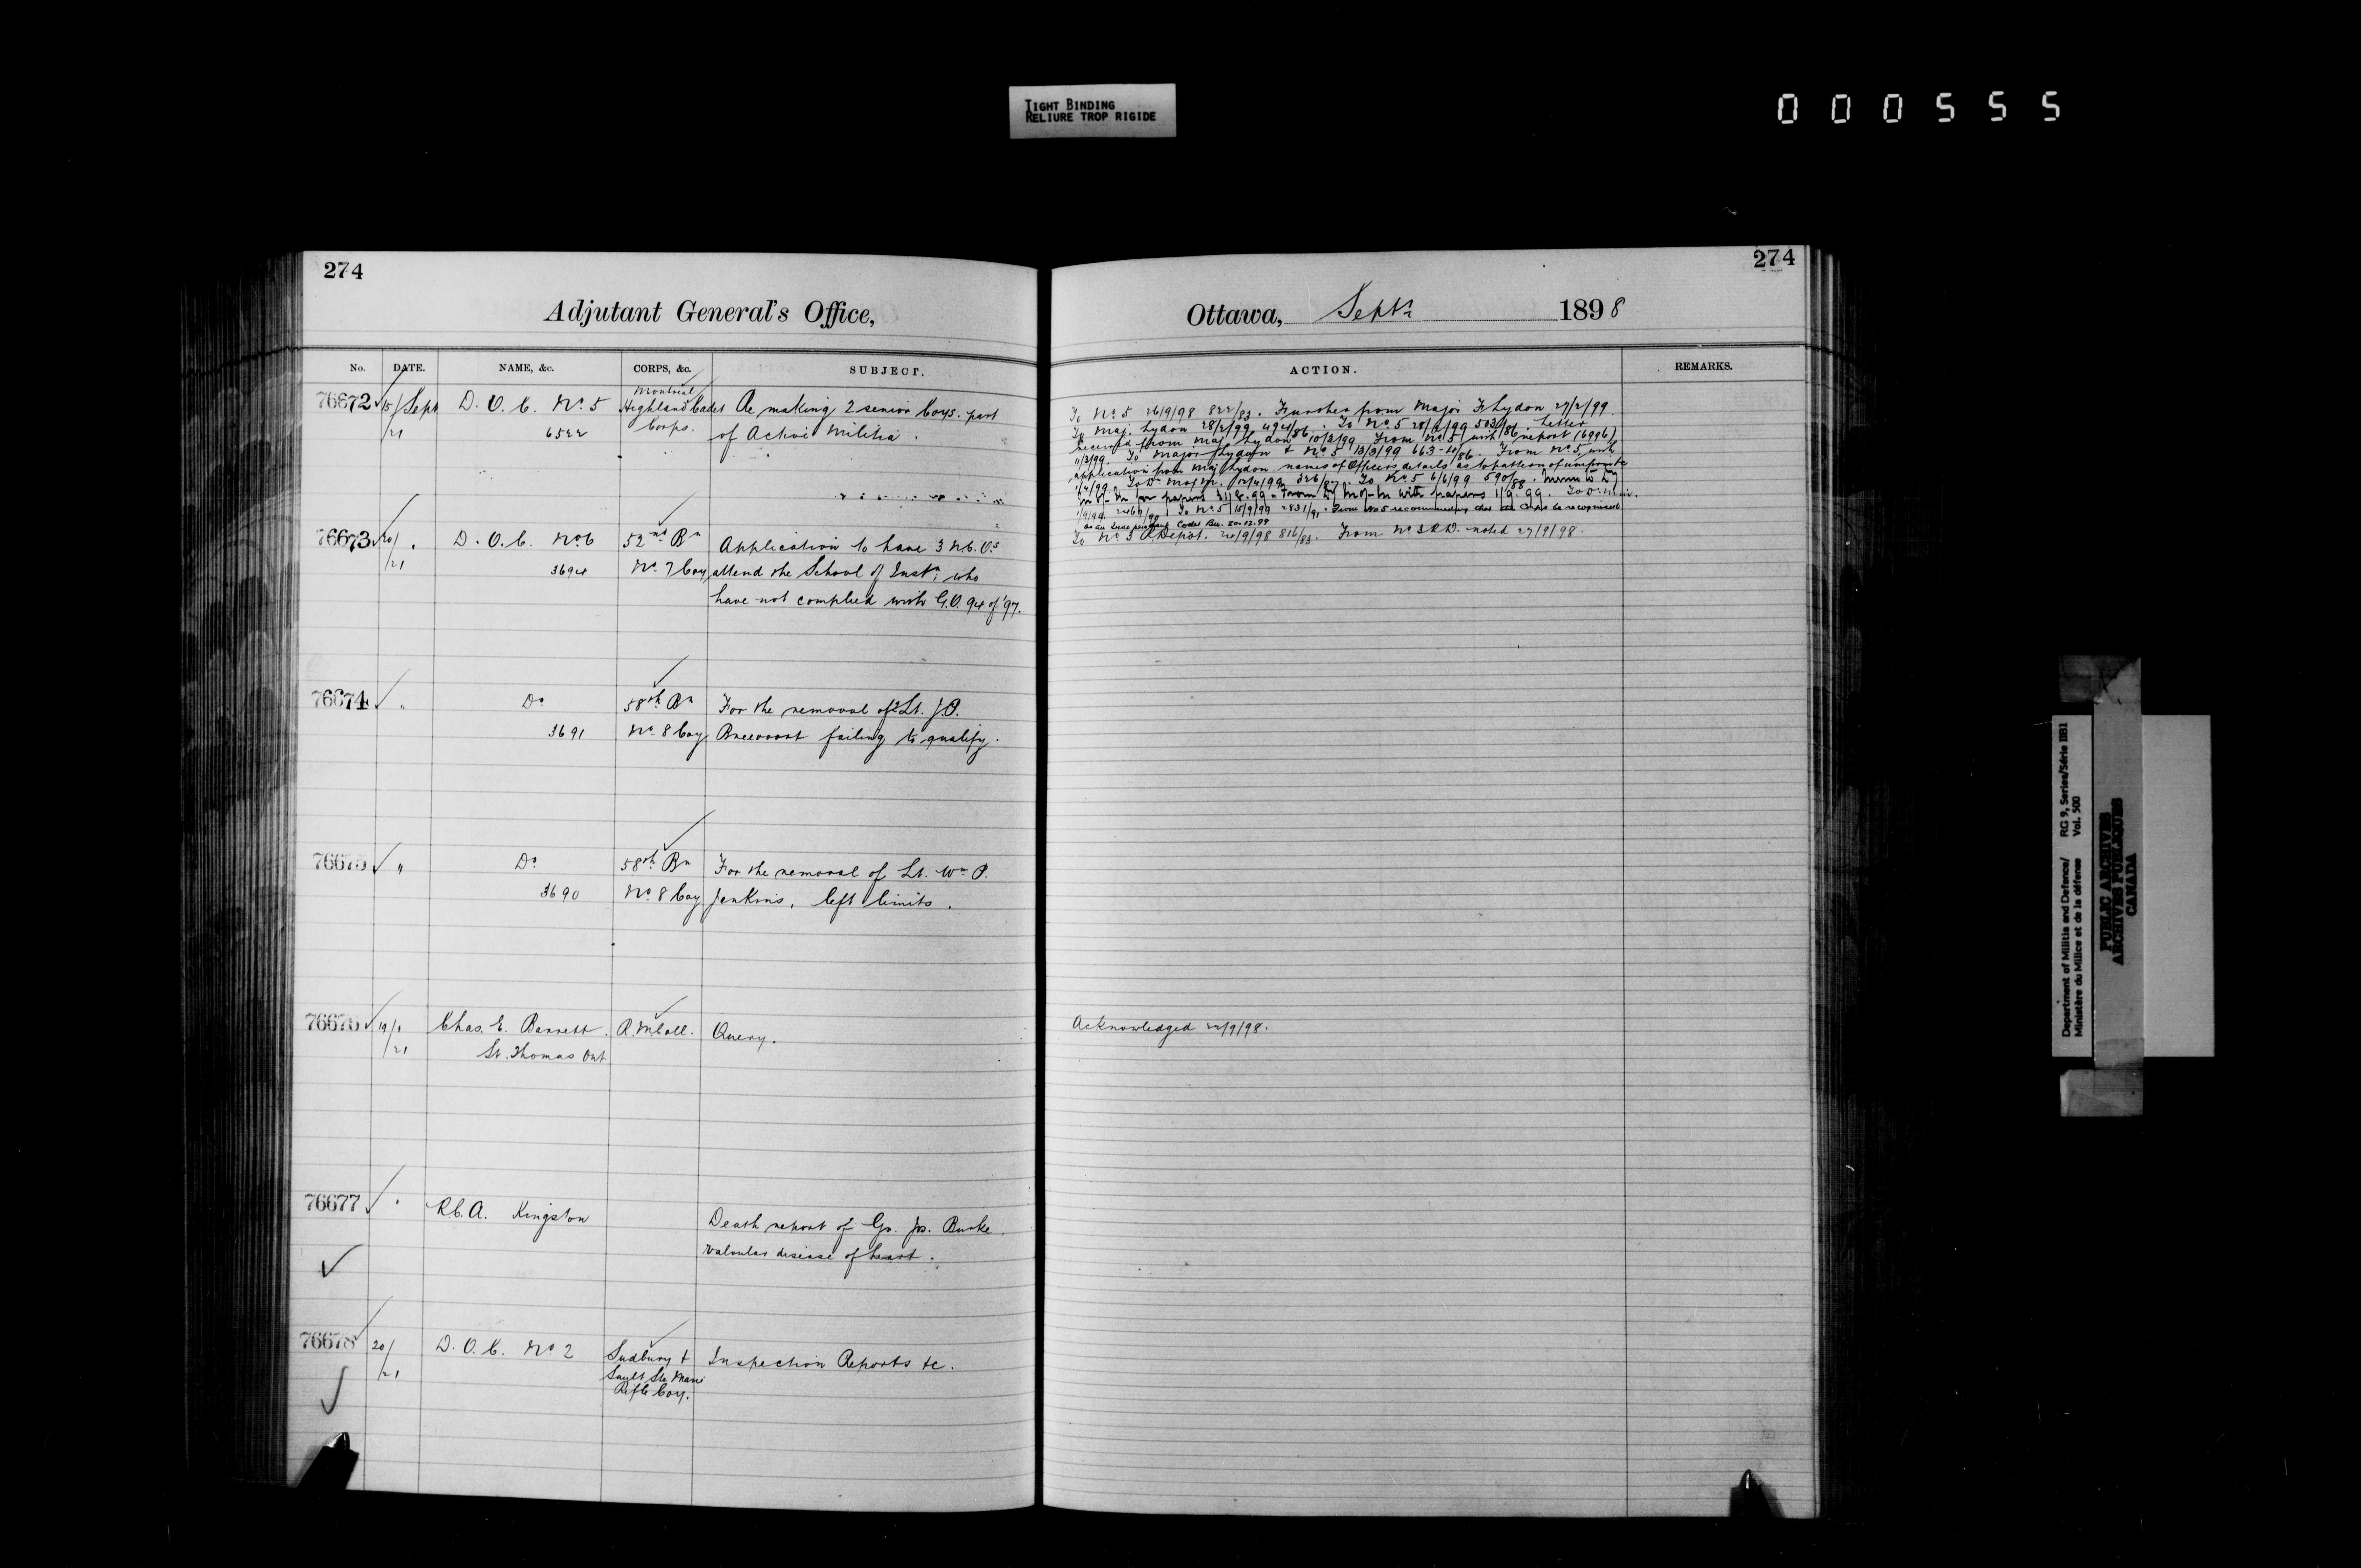 TIGHT BINDING
RELIURE TROP RIGIDE
000555
274
Adjutant General's Office,
No. DATE. NAME, &c. CORPS, &c. SUBJECT.
76672 15/Sept D. O. C. No. 5 Montreal Highland Cadet Re making 2 senior Coys. part
21 6522 Corps. of Active Militia.
76673 20/ " D. O. C. No 6 52nd Bn Application to have 3 N.C.O.s
/21 3694 No. 7 Coy attend the School of Instn. who
have not complied with G.O. 94 of '97.
76674 " Do 58th Bn For the removal of 2 Lt. J.O.
3691 No. 8 Coy failing to qualify.
76675 " Do 58th Bn For the removal of Lt. Wm P.
3690 No. 8 Coy Jenkins, left limits.
76676 19/ " Chas. E. Barrett. R. M. Coll. Query.
/21 St. Thomas Ont
76677 " R.C.A. Kingston Death report of Gr. Jos. Burke
valvular disease of heart.
76678 20/ D. O. C. No 2 Sudbury & Inspection Reports &c.
/21 Sault Ste Marie
Rifle Coy.
274
Ottawa, Septr 1898
ACTION. REMARKS.
To No. 5 26/9/98 822/83. Further from Major Lydon 27/2/99.
To Maj. Lydon 28/2/99 494/86. To No. 5 28/2/99 503/86. Letter
received from Maj Lydon 10/3/99. From No. 5 with report (6996)
11/3/99. To Major Lydon & No. 5 13/3/99 663-4/86. From No. 5, with
application from Maj Lydon names of Officers details as to pattern of uniform &c
1/4/99. To D. Maj Mr. 12/4/99 326/87. To No. 5 6/6/99 590/88. Memo to Dy
M of M for papers 31/8.99. From Dy M of M with papers 1/9.99. To
1/9/99 To No. 5 15/9/99 2831/91. From No 5 recommending that Corps be recognized
as an Independent Cadet Bn. 20.12.99
To No 3 R. Depot. 24/9/98 816/83. From No 3 R.D. noted 27/9/98.
Acknowledged 22/9/98.
Department of Militia and Defence/
Ministère du Milice et de la défense
RG 9, Series/Série IIB1
Vol. 500
PUBLIC ARCHIVES
ARCHIVES PUBLIQUES
CANADA